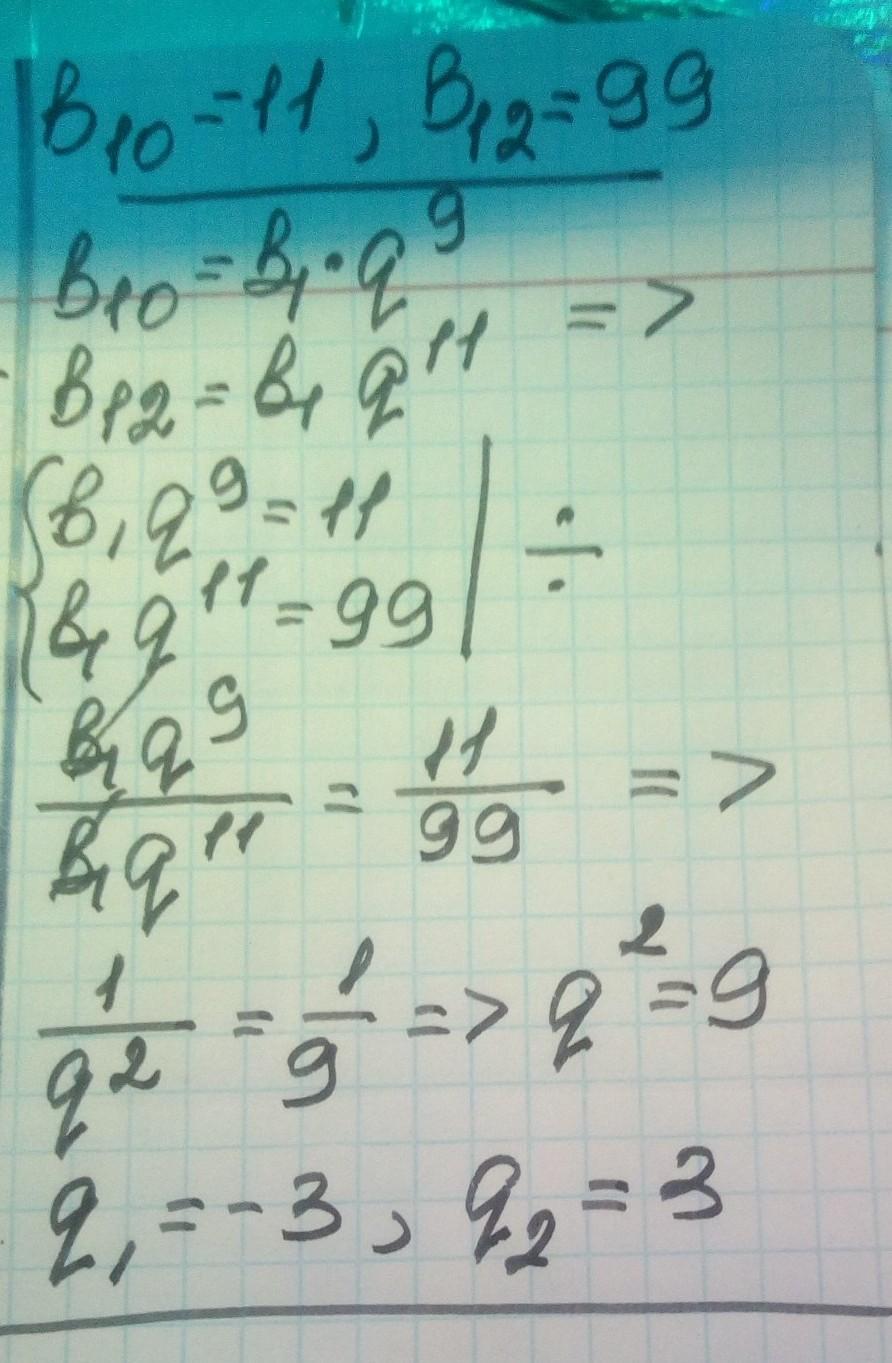 B₁₀ = 11, B₁₂ = 99
B₁₀ = B₁ · q⁹
=>
B₁₂ = B₁ q¹¹
{ B₁ q⁹ = 11
B₁ q¹¹ = 99 | ÷
B₁q⁹ / B₁q¹¹ = 11/99 =>
1/q² = 1/9 => q² = 9
q₁ = -3, q₂ = 3